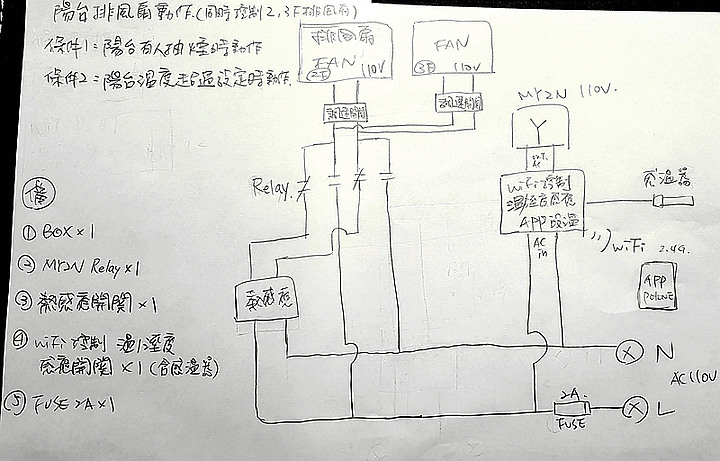 陽台排風扇動作(同時控制2,3F排風扇)
條件1=陽台有人抽煙時動作
條件2=陽台溫度走超過設定時動作
排風扇
FAN
2F 110V
FAN
3F 110V
調速開關
調速開關
MY2N 110V.
Y
out
AC
Relay
WiFi控制
溫溼度感應
APP設溫
感溫器
AC
in
WiFi 2.4G.
APP
熱感應
備
① BOX×1
② MY2N Relay×1
③ 熱感應開關×1
④ WiFi控制 溫溼度
感應開關×1(含感溫器)
⑤ FUSE 2A×1
N
AC110V
2A.
L
FUSE